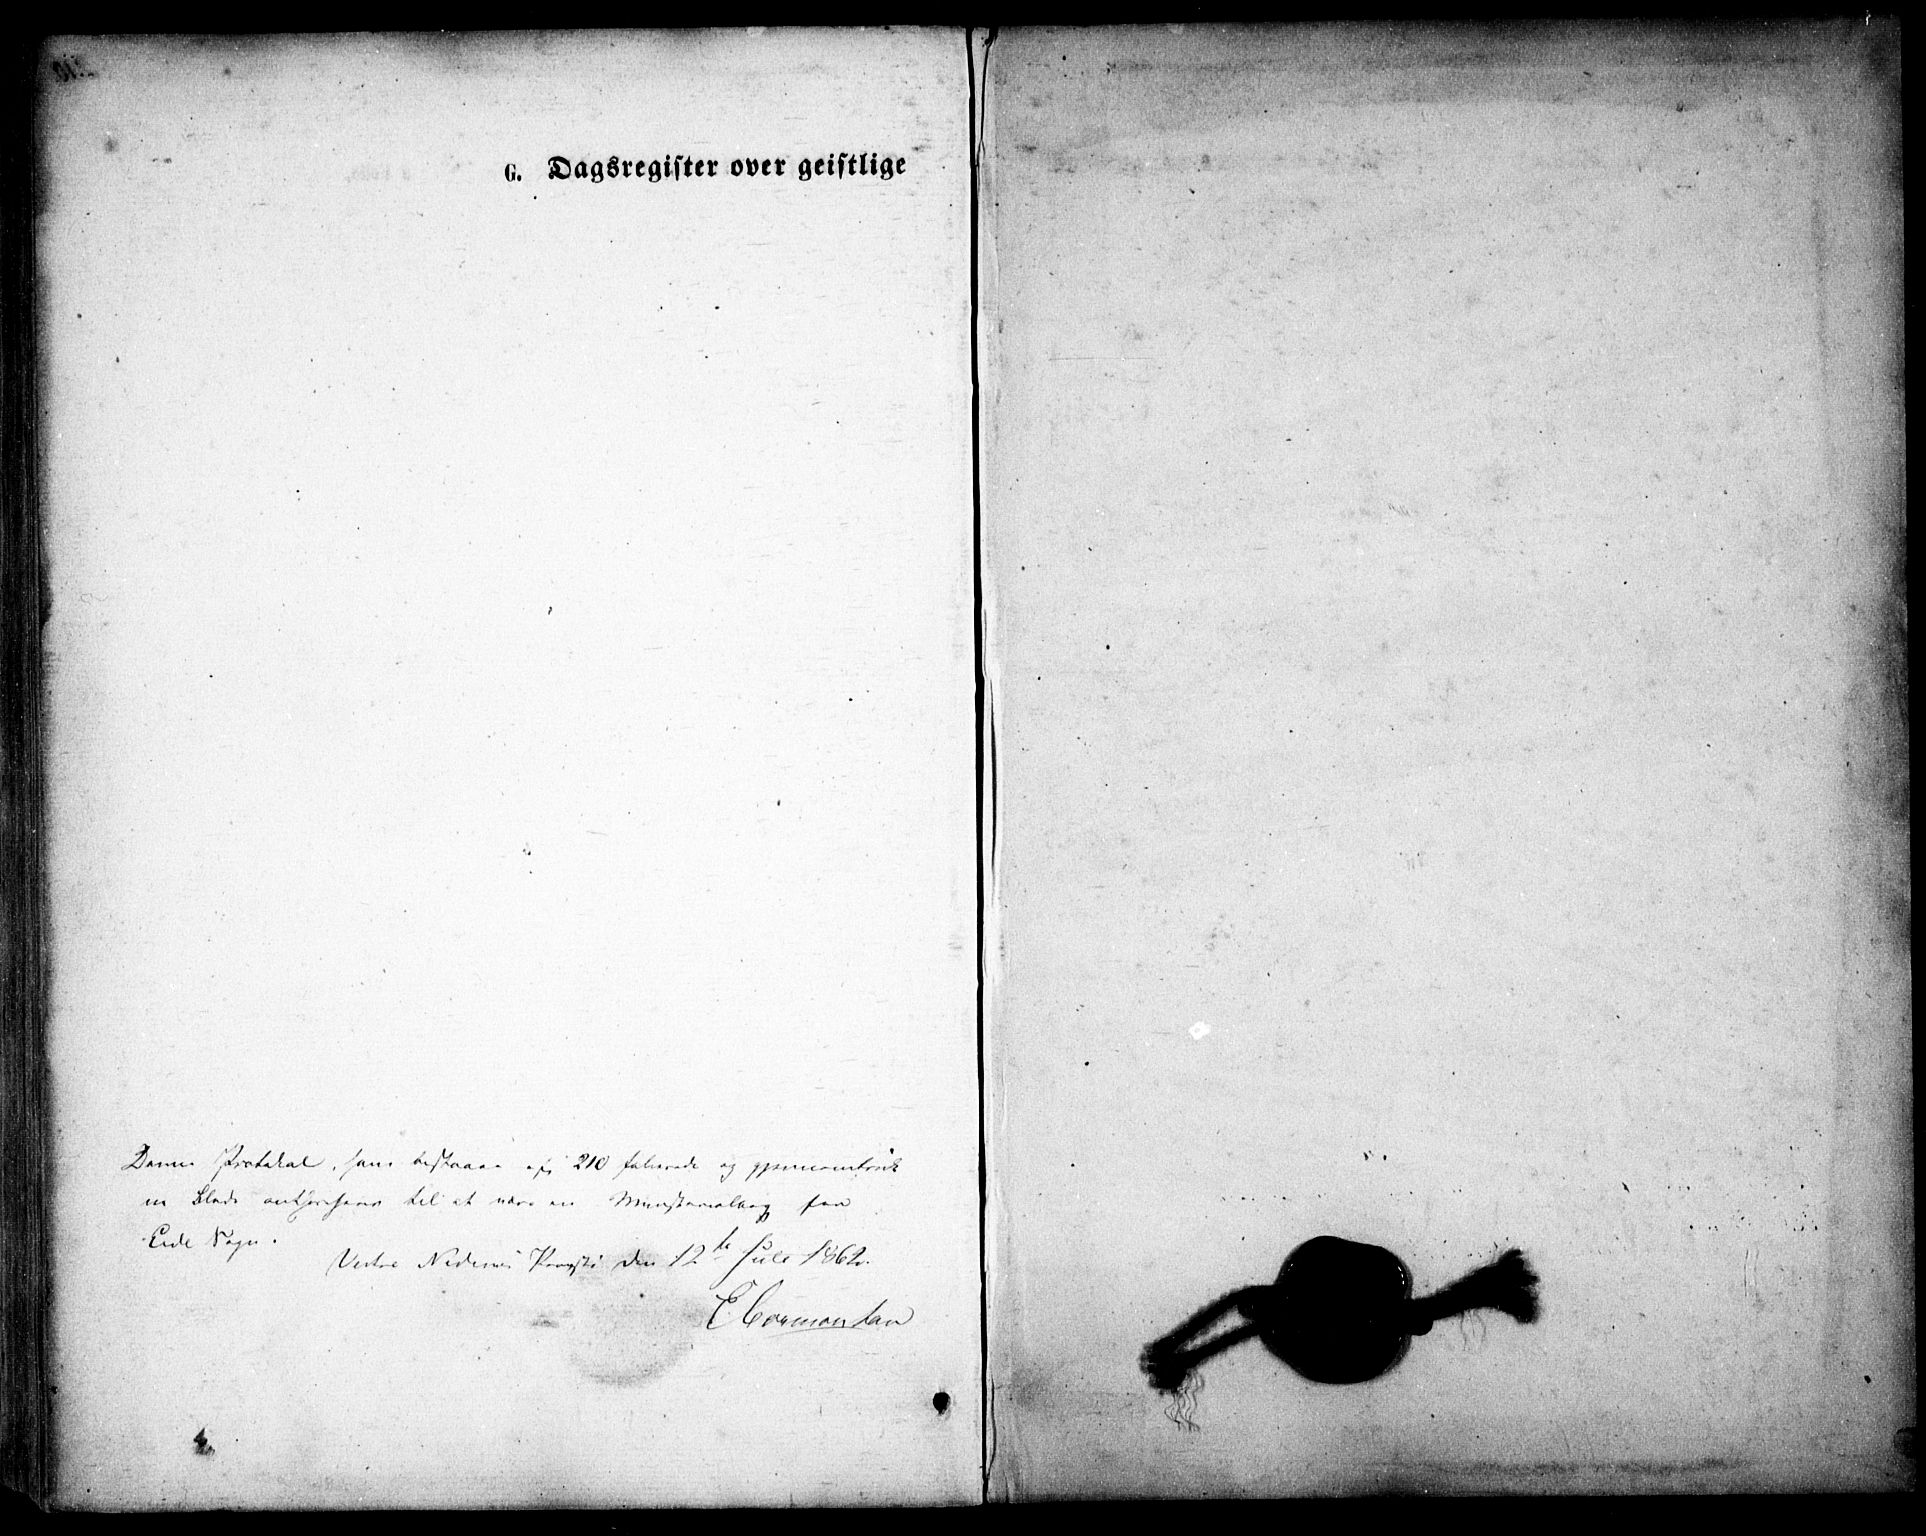 G. Dagsregister over geistlige
Denne Protokol, som bestaaer af 210 folierede og gjennemtruk
ne Blade authoriseres til at være en Ministerialbog for
Eide Sogn.
Vestre Nedenæs Provsti den 12te Juli 1862.